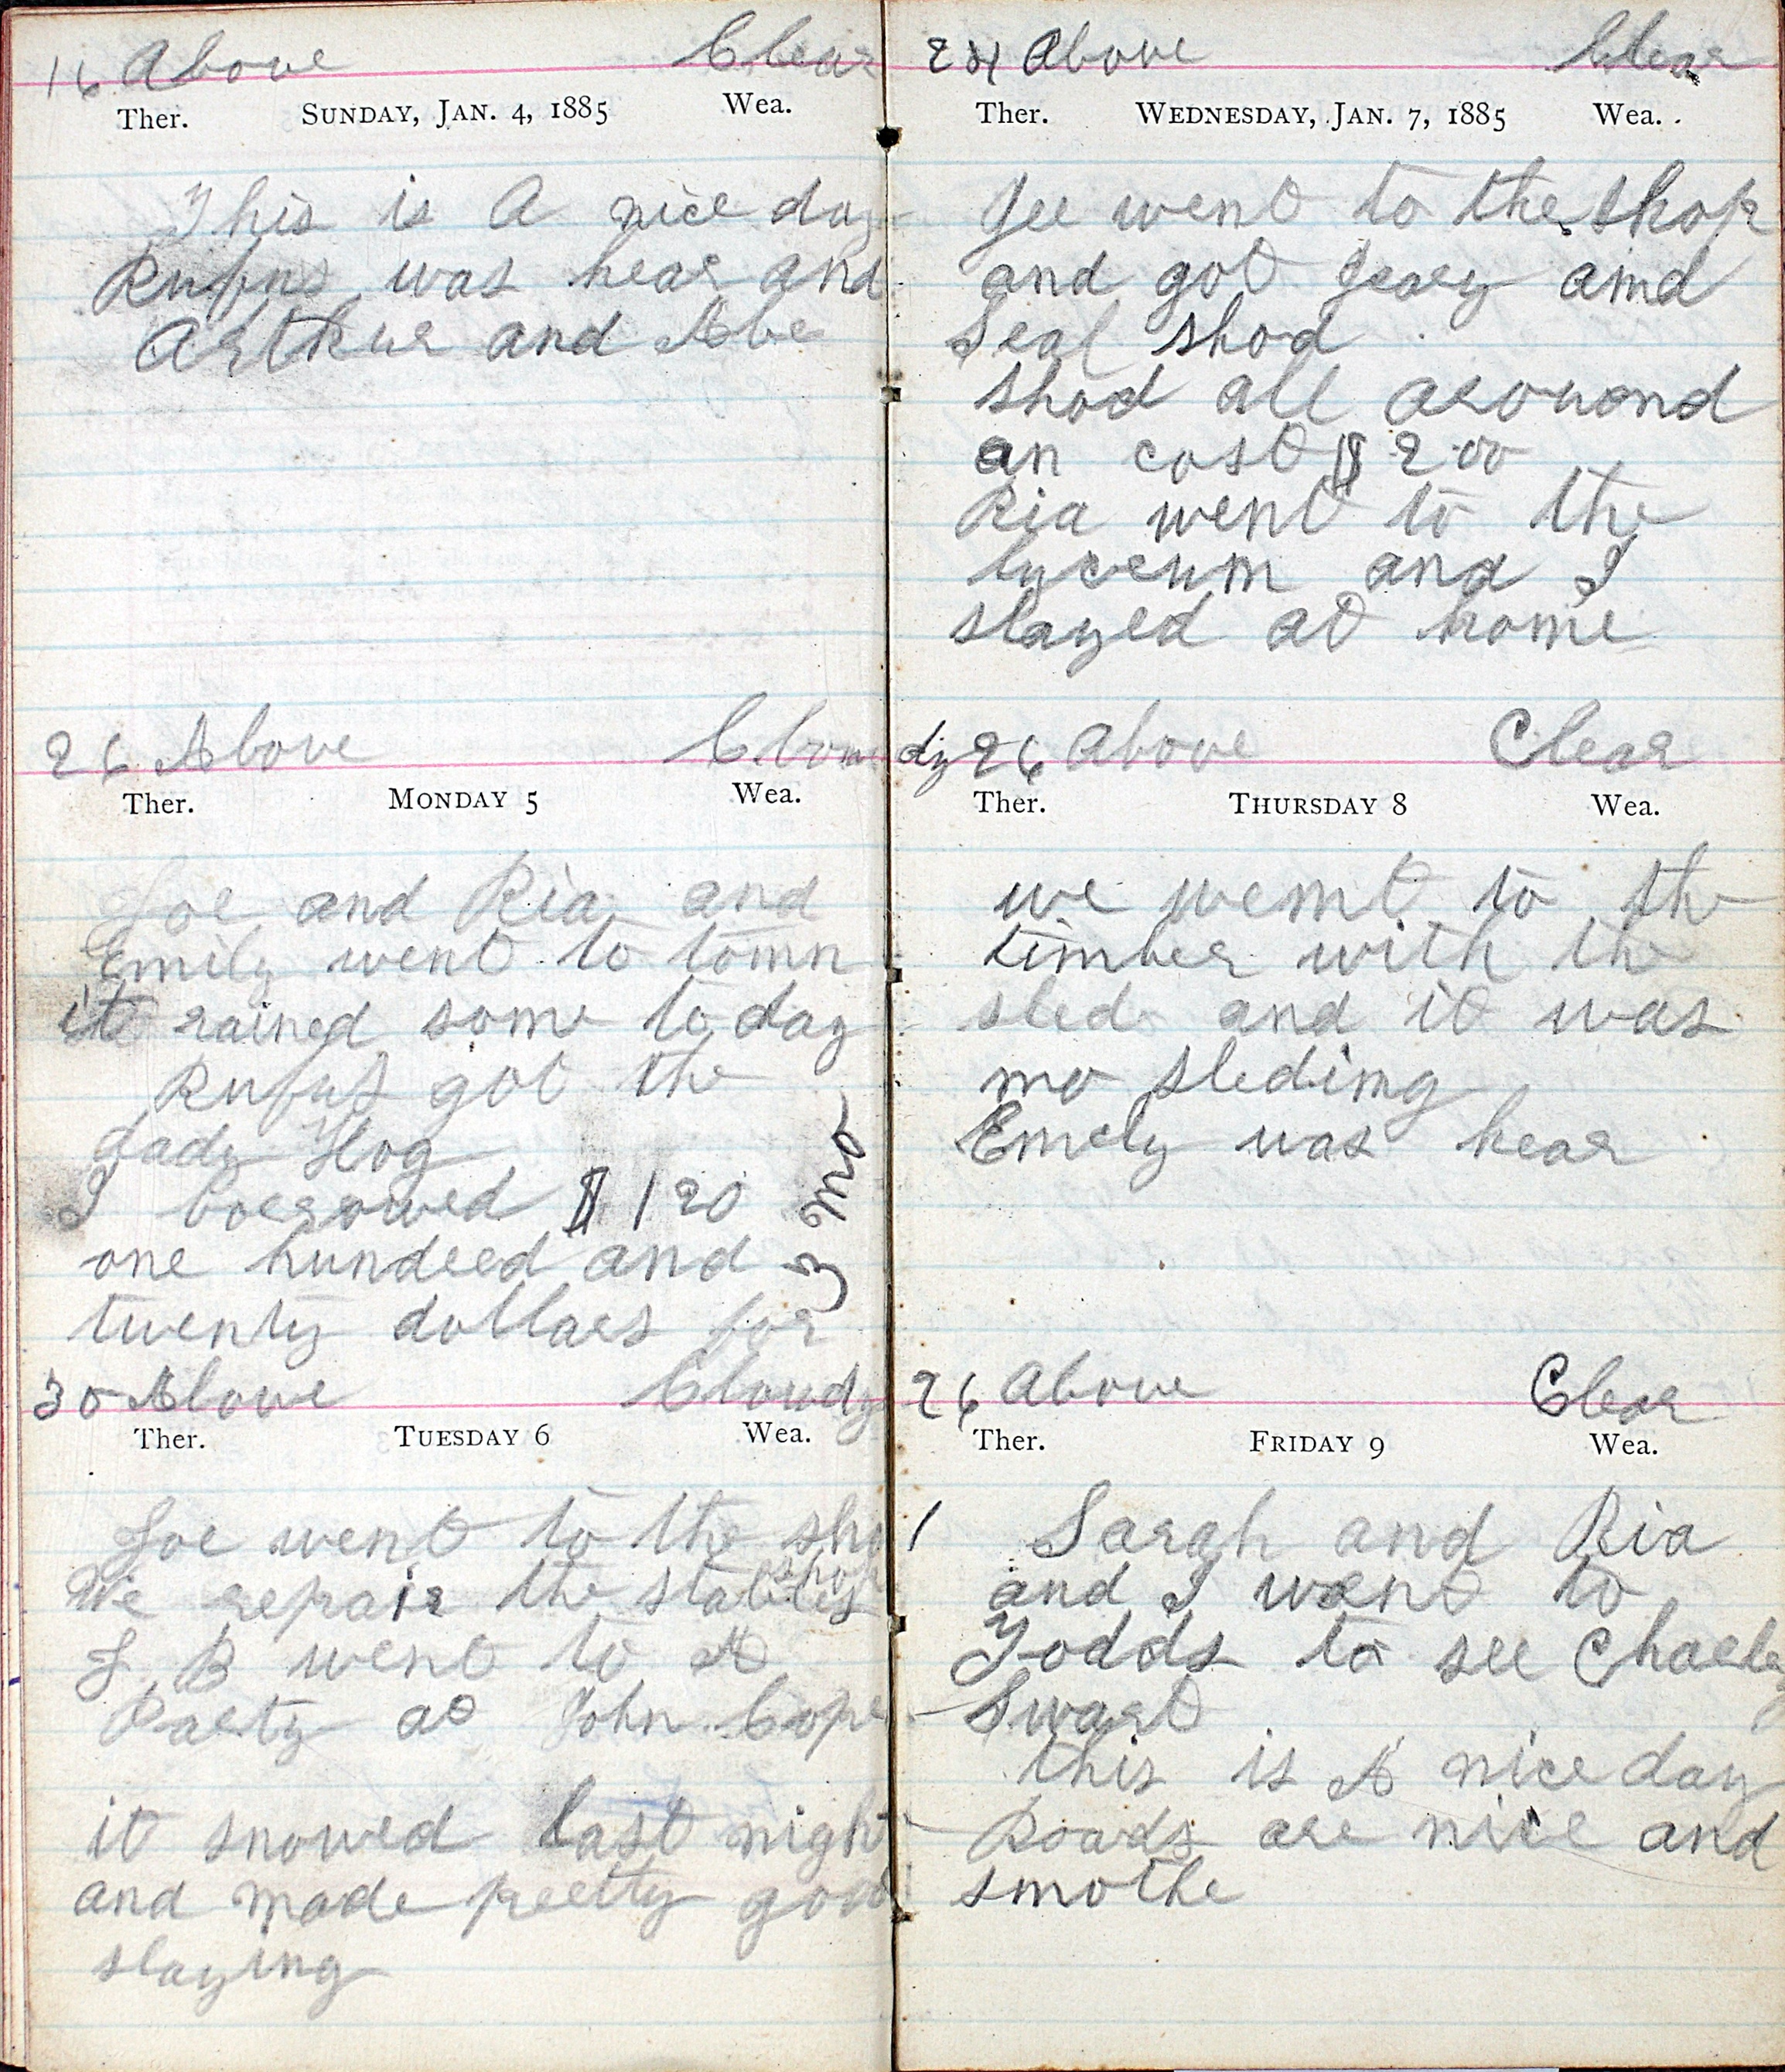 16 Above Clear
Ther. SUNDAY, JAN. 4, 1885 Wea.
This is A nice day
Rufus was hear and
Arthur and Abe
26 Above Cloudy
Ther. MONDAY 5 Wea.
Joe and Ria and
Emily went to town
it rained some to day
Rufus got the
dady Hog
I borrowed $120
one hundred and
twenty dollars for 3 mo
30 Above Cloudy
Ther. TUESDAY 6 Wea.
Joe went to the shop
We repair the stables
J. B went to A
Party at John Cope
it snowed last night
and made preety good
slaying
24 Above Clear
Ther. WEDNESDAY, JAN. 7, 1885 Wea.
Joe went to the shop
and got Jeary and
Seal shod
shod all arouond
an cost $2.00
Ria went to the
lyceum and I
stayed at home
26 above Clear
Ther. THURSDAY 8 Wea.
we went to the
timber with the
sled and it was
no sleding
Emely was hear
26 Above Clear
Ther. FRIDAY 9 Wea.
Sarah and Ria
and I went to
Todds to see Charley
Swart
this is A nice day
Roads are nice and
smothe